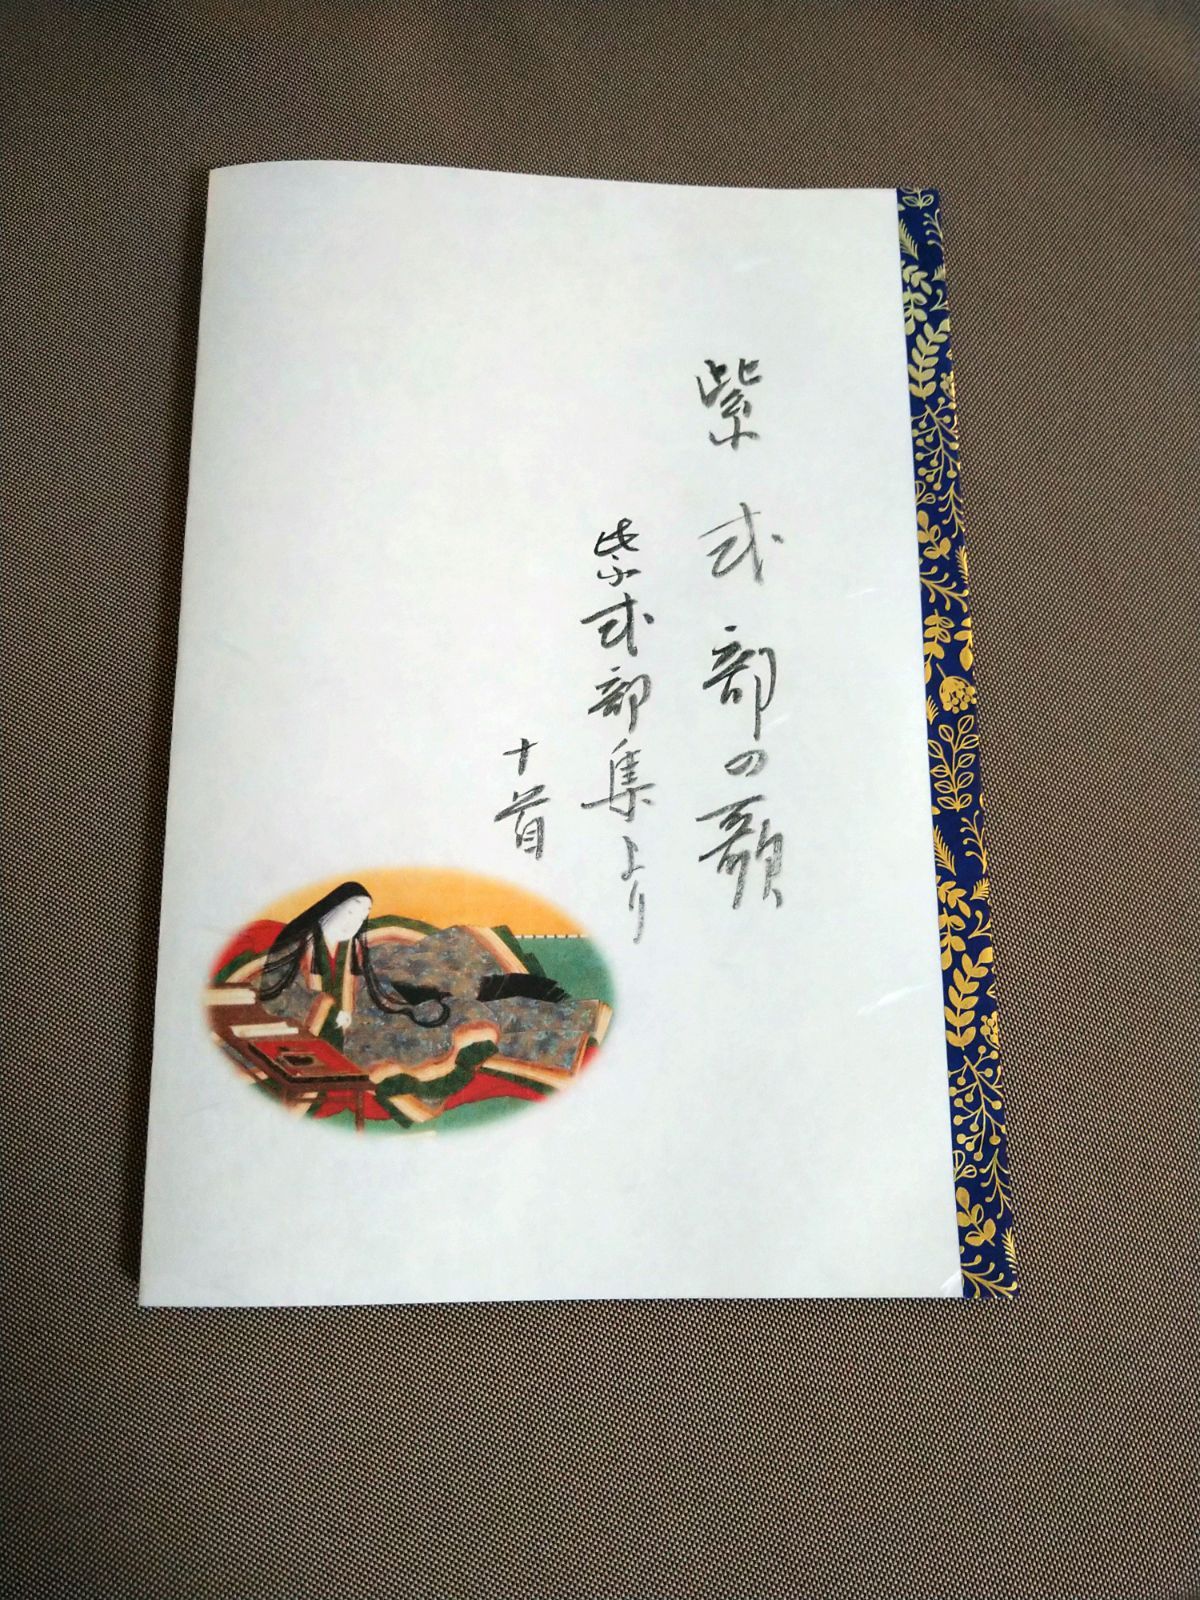 紫式部の歌
紫式部集より
十首